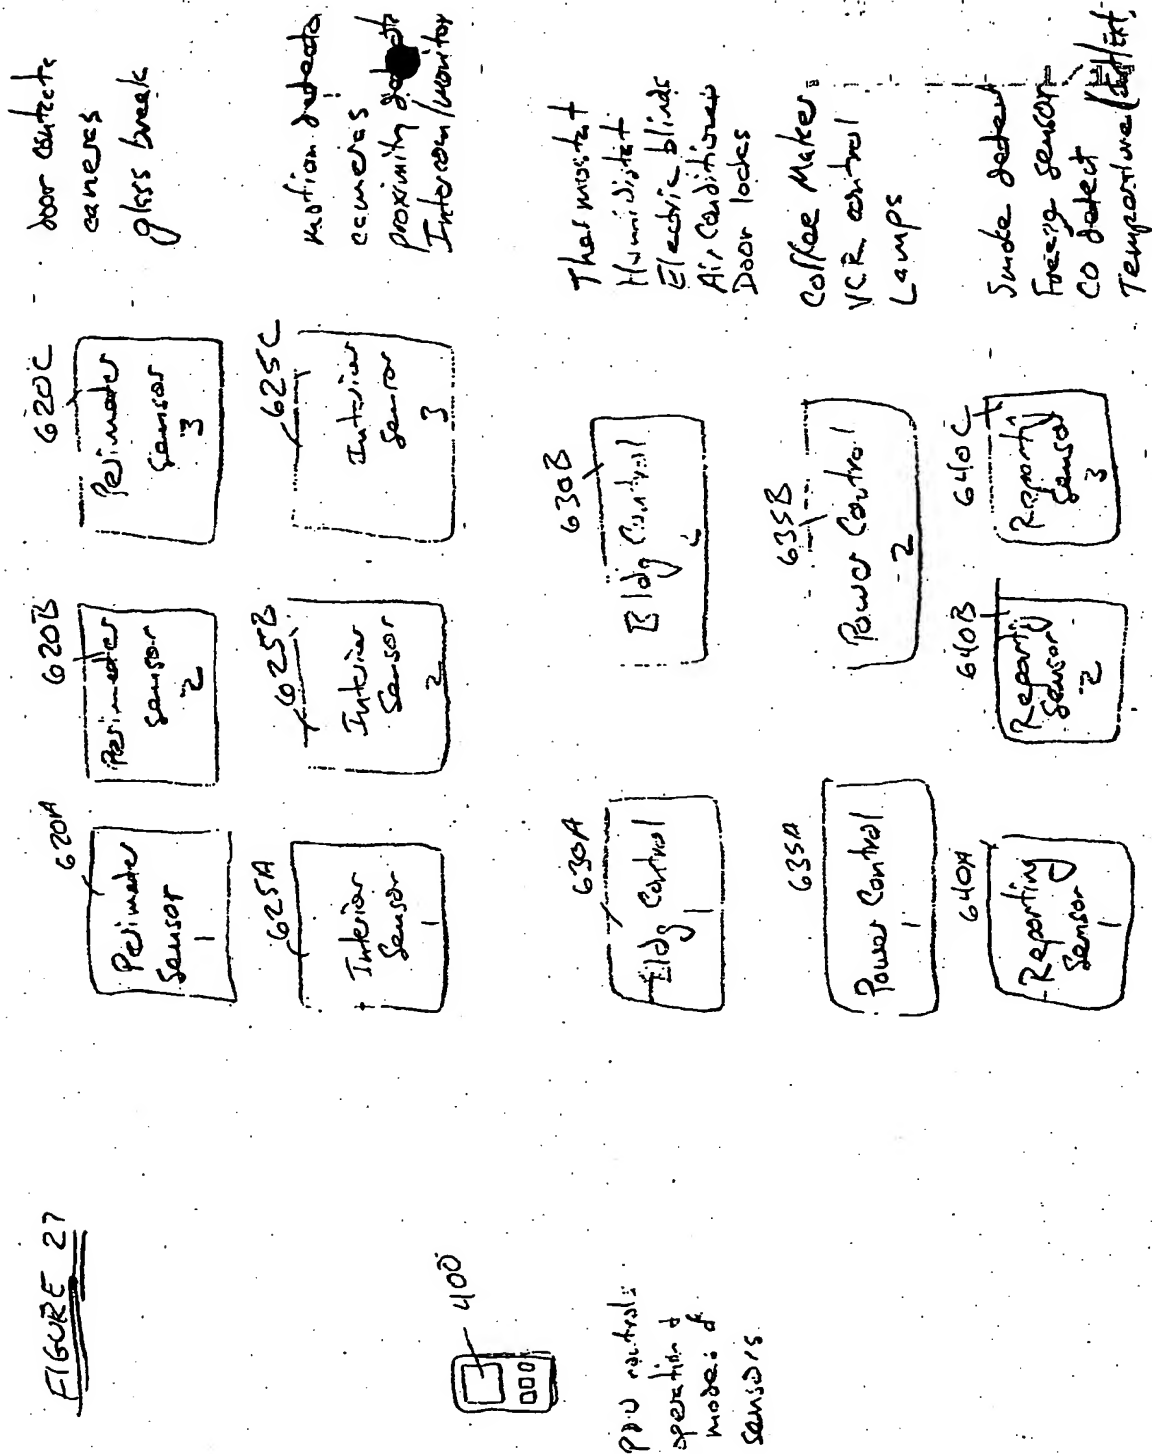 FIGURE 27
400
operation &
modes of
sensors
620A
Perimeter
Sensor
1
620B
Perimeter
Sensor
2
620C
Perimeter
Sensor
3
door contacts
cameras
glass break
625A
Interior
Sensor
1
625B
Interior
Sensor
2
625C
Interior
Sensor
3
motion detects
cameras
proximity
Intercom/monitor
630A
Bldg Control
1
630B
Bldg Control
Thermostat
Humidistat
Electric blinds
Air Conditioner
Door locks
635A
Power Control
1
635B
Power Control
2
Coffee Maker
VCR control
Lamps
640A
Reporting
Sensor
1
640B
Reporting
Sensor
2
640C
Reporting
Sensor
3
Smoke detect
Freeze sensor
CO detect
Temperature